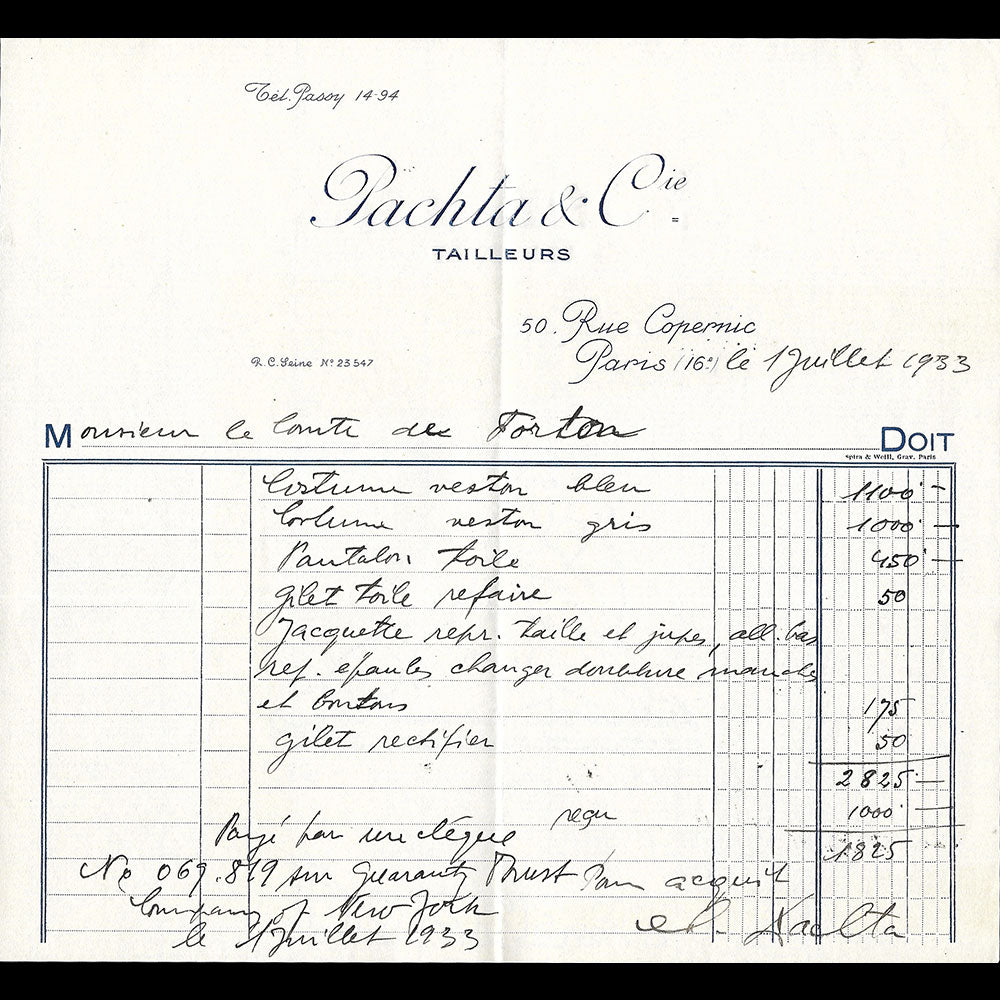 Tél. Passy 14-94
Pachta & Cie
TAILLEURS
50. Rue Copernic
Paris (16e) le 1 Juillet 1933
R.C. Seine No 23547
Monsieur le Comte de Forton DOIT
Spira & Weill, Grav. Paris
Costume veston bleu 1100 -
Costume veston gris 1000 -
Pantalon toile 450 -
gilet toile refaire 50
Jacquette repr. taille et jupes, all. bas
ref. épaules changer doublure manches
et boutons 175
gilet rectifier 50
2825 -
reçu 1000 -
1825
Payé par un chèque
No 069.819 sur Guaranty Trust Pour acquit
Company of New York
Pachta
le 1 Juillet 1933